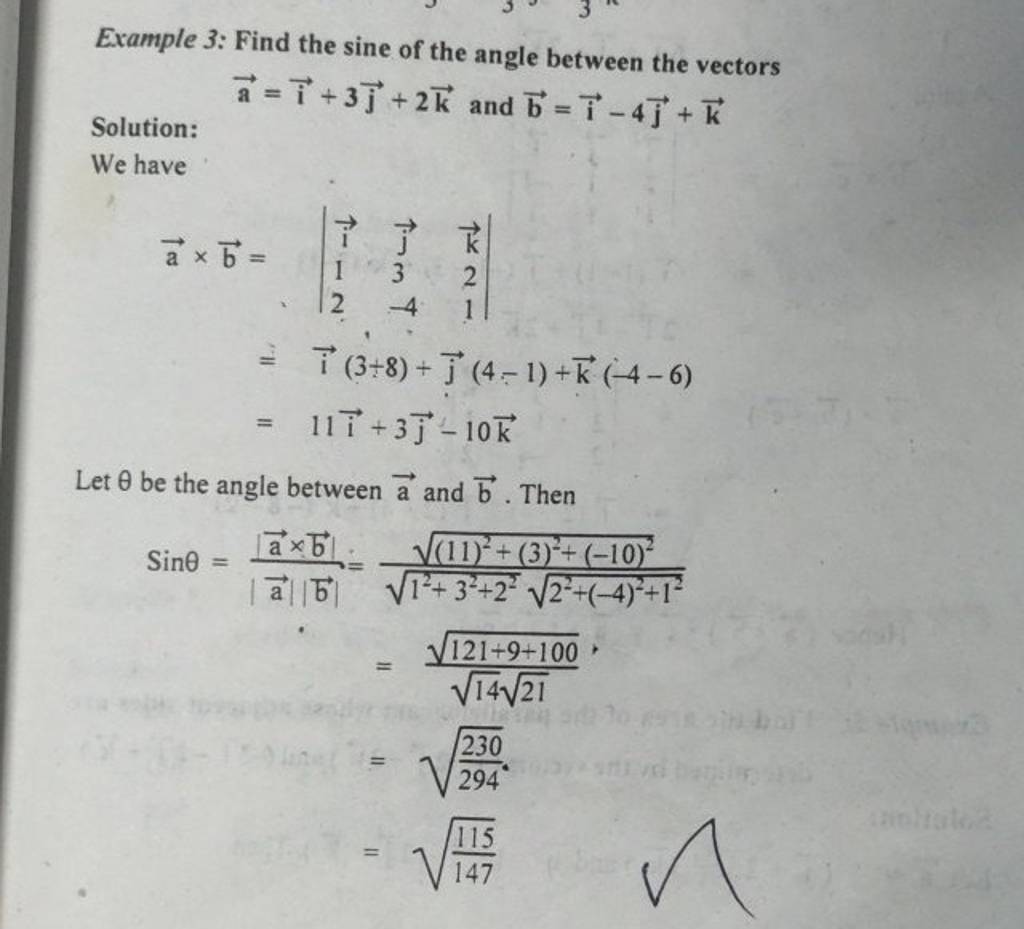 Example 3: Find the sine of the angle between the vectors
a⃗ = i⃗ + 3j⃗ + 2k⃗ and b⃗ = i⃗ – 4j⃗ + k⃗
Solution:
We have
a⃗ × b⃗ = | i⃗ j⃗ k⃗ |
| 1 3 2 |
| 2 –4 1 |
= i⃗ (3+8) + j⃗ (4 – 1) + k⃗ (–4 – 6)
= 11i⃗ + 3j⃗ – 10k⃗
Let θ be the angle between a⃗ and b⃗ . Then
Sinθ = |a⃗×b⃗| / |a⃗||b⃗| = √((11)² + (3)² + (–10)²) / √(1²+ 3²+2²) √(2²+(–4)²+1²)
= √(121+9+100) / √14√21
= √(230/294)
= √(115/147)